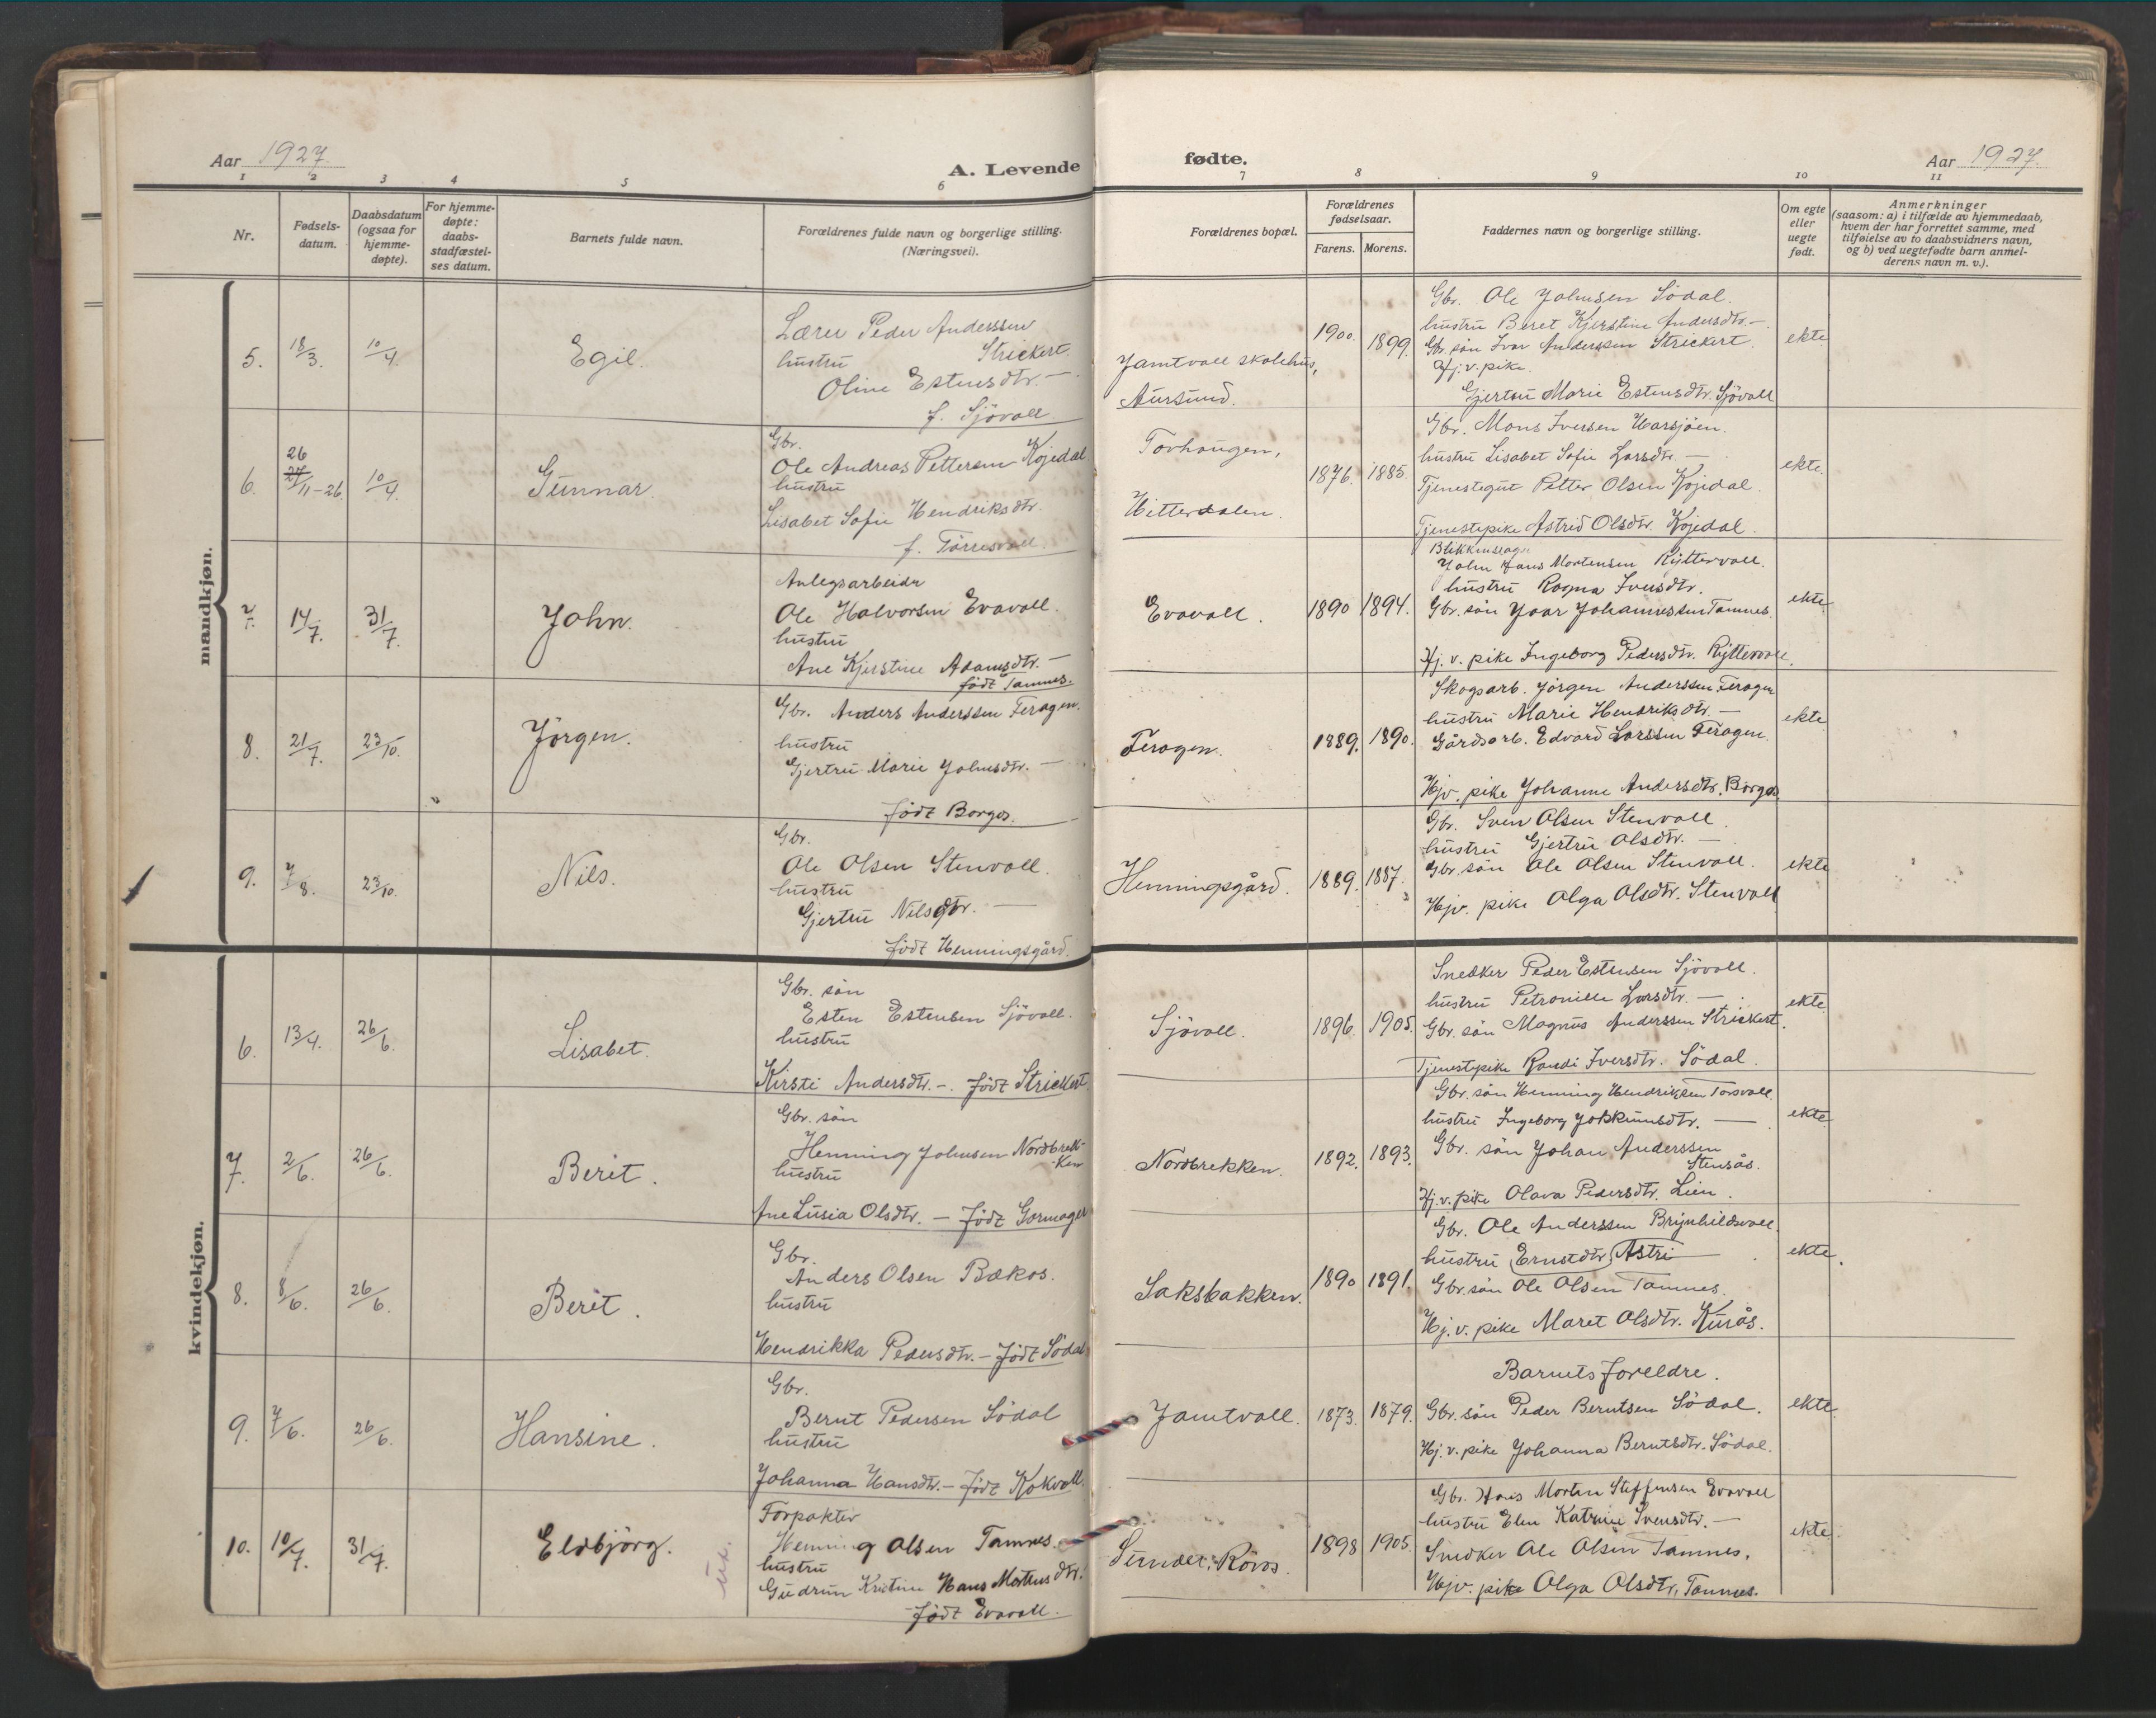 Aar 1927.
A. Levende
fødte.
Aar 1927.
1 2 3 4 5 6 7 8 9 10 11
Nr.
Fødsels-
datum.
Daabsdatum
(ogsaa for
hjemme-
døpte).
For hjemme-
døpte:
daabs-
stadfæstel-
ses datum.
Barnets fulde navn.
Forældrenes fulde navn og borgerlige stilling.
(Næringsvei).
Forældrenes bopæl.
Forældrenes
fødselsaar.
Farens. Morens.
Faddernes navn og borgerlige stilling.
Om egte
eller
uegte
født.
Anmerkninger
(saasom: a) i tilfælde av hjemmedaab,
hvem der har forrettet samme, med
tilføielse av to daabsvidners navn,
og b) ved uegtefødte barn anmel-
derens navn m. v.).
mandkjøn.
5. 18/3. 10/4. Egil.
Lærer Peder Anderssen
Strickert.
hustru
Oline Estensdtr. —
f. Sjövoll
Jamtvoll skolehus,
Aursund.
1900. 1899.
Gbr. Ole Johnsen Södal.
hustru Beret Kjerstine Andersdtr. —
Gbr. sön Ivar Anderssen Strickert.
Hj. v. pike.
Gjertru Marie Estensdtr. Sjövoll
ekte
6. 26/11-26. 10/4. Gunnar.
Gbr.
Ole Andreas Pettersen Kojedal
hustru
Lisabet Sofie Hendriksdtr.
f. Törresvoll.
Torhaugen,
Hitterdalen.
1876. 1885.
Gbr. Mons Iversen Harsjöen.
hustru Lisabet Sofie Larsdtr. —
Tjenestegut Petter Olsen Kojedal.
Tjenestepike Astrid Olsdtr. Kojedal.
ekte.
7. 14/7. 31/7. John.
Anlegsarbeider
Ole Halvorsen Evavoll.
hustru
Ane Kjerstine Adamsdtr. —
född Tamnes.
Evavoll.
1890 1894.
Blikkenslager
John Hans Mortensen Ryttervoll.
hustru Ragna Iversdtr.
Gbr. sön Ivar Johannessen Tamnes.
Hj. v. pike Ingeborg Pedersdtr. Ryttervoll.
ekte
8. 21/7. 23/10. Jörgen.
Gbr. Anders Anderssen Feragen.
hustru
Gjertru Marie Johnsdtr. —
född Borgos.
Feragen.
1889. 1890.
Skogsarb. Jörgen Anderssen Feragen
hustru Marie Hendriksdtr. —
Gårdsarb. Edvard Larssen Feragen.
Hjv. pike Johanne Andersdtr. Borgos.
ekte
9. 7/8. 23/10. Nils.
Gbr.
Ole Olsen Stenvoll.
hustru
Gjertru Nilsdtr. —
född Henningsgård.
Henningsgård.
1889. 1887.
Gbr. Sven Olsen Stenvoll.
hustru Gjertru Olsdtr. —
Gbr. sön Ole Olsen Stenvoll.
Hjv. pike Olga Olsdtr. Stenvoll
ekte
kvindekjøn.
6. 13/4. 26/6. Lisabet.
Gbr. sön
Esten Estensen Sjövoll.
hustru
Kirsti Andersdtr. —. född Strickert
Sjövoll.
1896. 1905.
Snedker Peder Estensen Sjövoll.
hustru Petronille Larsdtr. —
Gbr. sön Magnus Anderssen Strickert.
Tjenestepike Randi Iversdtr. Södal.
ekte
7. 2/6. 26/6. Berit.
Gbr. sön
Henning Johnsen Nordbrek-
ken
hustru
Ane Lusia Olsdtr. — född Gormager
Nordbrekken.
1892. 1893.
Gbr. sön Henning Hendriksen Torsvoll.
hustru Ingeborg Jokkumsdtr. —
Gbr. sön Johan Anderssen
Stensås.
Hj. v. pike Olava Pedersdtr. Lien.
ekte
8. 8/6. 26/6. Berit.
Gbr.
Anders Olsen Bækos.
hustru
Hendrikka Pedersdtr. — född Södal
Saksbakken.
1890 1891.
Gbr. Ole Anderssen Brynhildsvoll.
hustru Ernstdtr. Astri —
Gbr. sön Ole Olsen Tamnes.
Hj. v. pike Maret Olsdtr. Kurås.
ekte.
9. 7/6. 26/6. Hansine.
Gbr.
Bernt Pedersen Södal
hustru
Johanna Hansdtr. — född Kokvoll.
Jamtvoll.
1873. 1879.
Barnets foreldre.
Gbr. sön Peder Berntsen Södal.
Hj. v. pike Johanna Berntsdtr. Södal.
ekte.
10. 10/7. 31/7. Eldbjörg.
Forpakter
Henning Olsen Tamnes.
hustru
Gudrun Kristine Hans Mortensdtr.
född Evavoll.
Sundet, Röros.
1898 1905.
Gbr. Hans Morten Steffensen Evavoll
hustru Elen Katrine Svensdtr. —
Snedker Ole Olsen Tamnes.
Hjv. pike Olga Olsdtr. Tamnes.
ekte